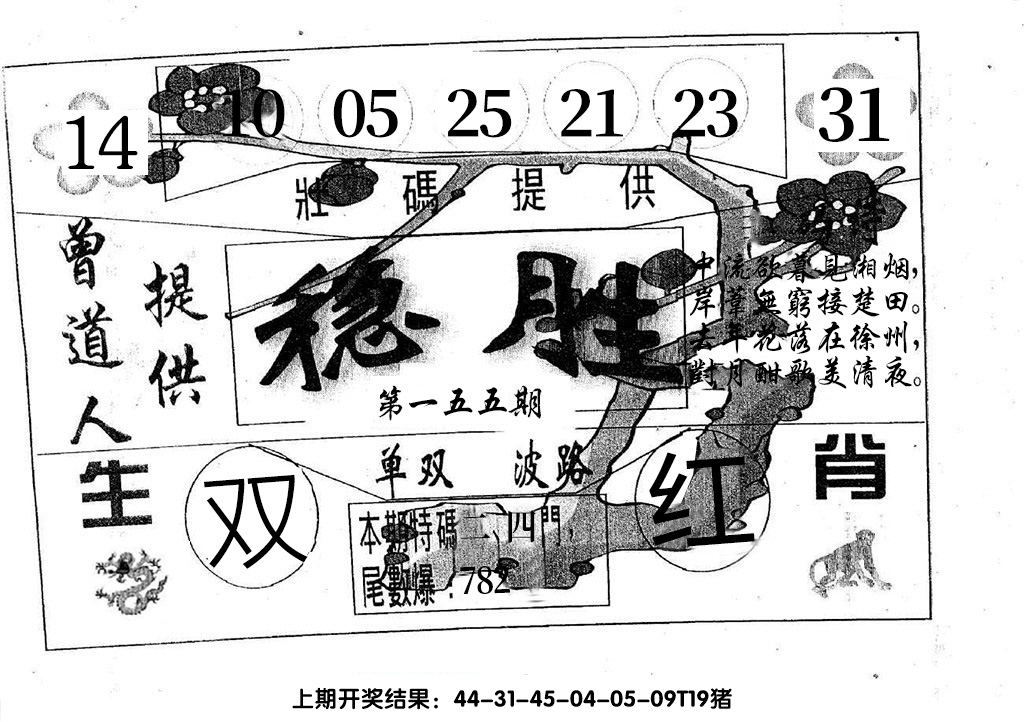 14 10 05 25 21 23 31
壯碼提供
曾道人
提供
稳胜
第一五五期
中流欲暮見湘烟，
岸葦無窮接楚田。
去年花落在徐州，
對月酣歌美清夜。
单双 波路
生 肖
双 红
本期特碼二、四門，
尾數爆：782
上期开奖结果：44-31-45-04-05-09T19猪